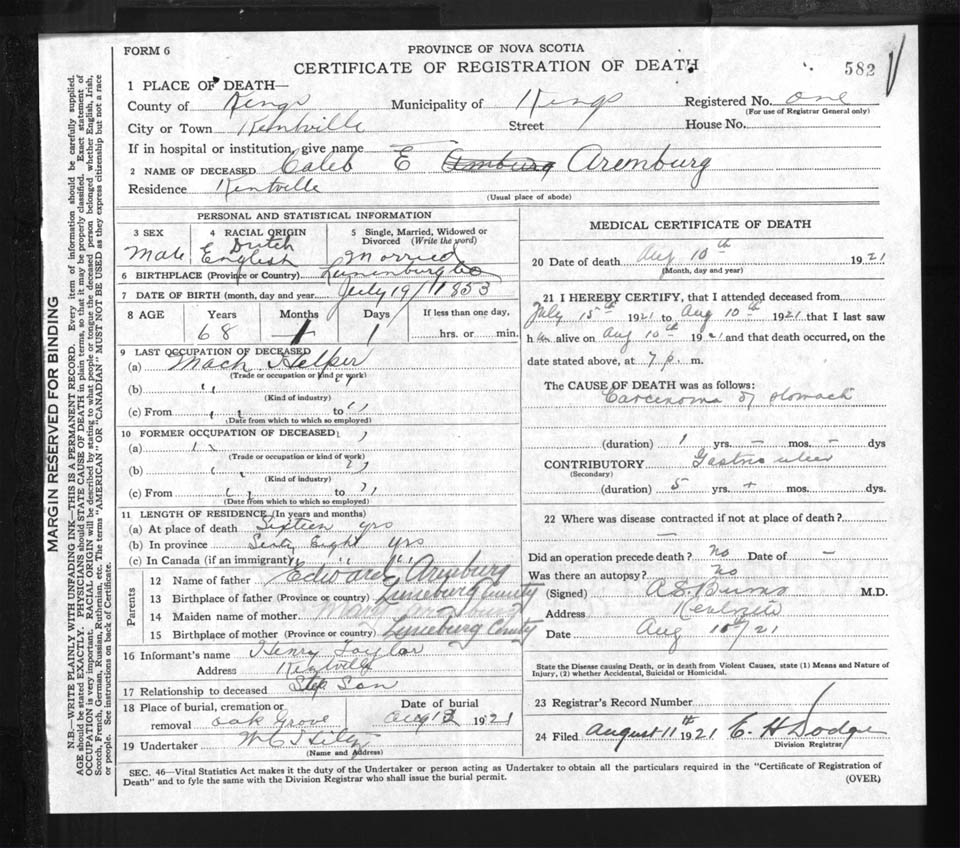 FORM 6
PROVINCE OF NOVA SCOTIA
CERTIFICATE OF REGISTRATION OF DEATH
582
1 PLACE OF DEATH—
County of Kings Municipality of Kings Registered No. one
(For use of Registrar General only)
City or Town Kentville Street House No.
If in hospital or institution, give name
2 NAME OF DECEASED Caleb E Aremburg
Residence Kentville
(Usual place of abode)
PERSONAL AND STATISTICAL INFORMATION
3 SEX 4 RACIAL ORIGIN 5 Single, Married, Widowed or Divorced (Write the word)
Male Dutch English Married
6 BIRTHPLACE (Province or Country) Lunenburg Co
7 DATE OF BIRTH (month, day and year) July 19/1853
8 AGE Years Months Days If less than one day,
68 1 hrs. or min.
9 LAST OCCUPATION OF DECEASED
(a) Mach Helper
(Trade or occupation or kind of work)
(b) " "
(Kind of industry)
(c) From " " to " "
(Date from which to which so employed)
10 FORMER OCCUPATION OF DECEASED
(a)
(Trade or occupation or kind of work)
(b)
(Kind of industry)
(c) From to
(Date from which to which so employed)
11 LENGTH OF RESIDENCE (In years and months)
(a) At place of death Sixteen yrs
(b) In province Sixty Eight yrs
(c) In Canada (if an immigrant) " " "
Parents
12 Name of father Edward Aremburg
13 Birthplace of father (Province or country) Luneburg County
14 Maiden name of mother Mary
15 Birthplace of mother (Province or country) Luneburg County
16 Informant's name Henry Taylor
Address Kentville
17 Relationship to deceased Step Son
18 Place of burial, cremation or removal Oak Grove Date of burial Aug 1921
19 Undertaker
(Name and Address)
MEDICAL CERTIFICATE OF DEATH
20 Date of death Aug 10th 1921
(Month, day and year)
21 I HEREBY CERTIFY, that I attended deceased from
July 15th 1921 to Aug 10th 1921 that I last saw
him alive on Aug 10th 1921 and that death occurred, on the
date stated above, at 7 p. m.
The CAUSE OF DEATH was as follows:
Carcinoma of stomach
(duration) 1 yrs. — mos. — dys
CONTRIBUTORY Gastric ulcer
(Secondary)
(duration) 5 yrs. + mos. dys.
22 Where was disease contracted if not at place of death?
—
Did an operation precede death? no Date of —
Was there an autopsy? no
(Signed) A.S. Burns M.D.
Address Kentville
Date Aug 10/21
State the Disease causing Death, or in death from Violent Causes, state (1) Means and Nature of
Injury, (2) whether Accidental, Suicidal or Homicidal.
23 Registrar's Record Number
24 Filed August 11th 1921 E. H Dodge
Division Registrar
SEC. 46—Vital Statistics Act makes it the duty of the Undertaker or person acting as Undertaker to obtain all the particulars required in the "Certificate of Registration of
Death" and to fyle the same with the Division Registrar who shall issue the burial permit.
(OVER)
MARGIN RESERVED FOR BINDING
N.B.—WRITE PLAINLY WITH UNFADING INK—THIS IS A PERMANENT RECORD. Every item of information should be carefully supplied.
AGE should be stated EXACTLY. PHYSICIANS should STATE CAUSE OF DEATH in plain terms, so that it may be properly classified. Exact statement of
OCCUPATION is very important. RACIAL ORIGIN will be described by stating to what people or tongue the deceased person belonged whether English, Irish,
Scotch, French, German, Russian, Ruthenian, etc. The terms "AMERICAN" OR "CANADIAN" MUST NOT BE USED as they express citizenship but not a race
or people. See instructions on back of Certificate.